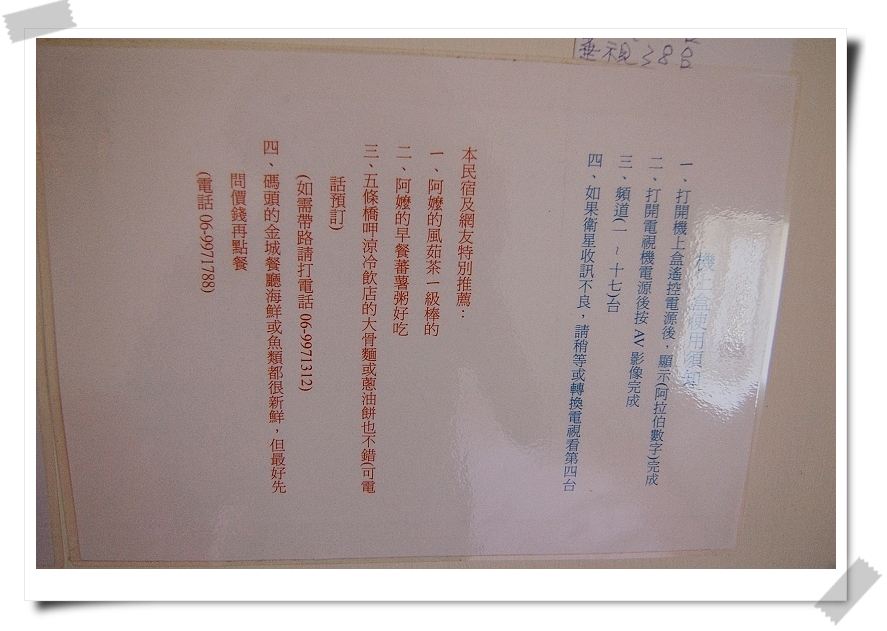 壹視38B
機上盒使用須知
一、打開機上盒遙控電源後，顯示(阿拉伯數字)完成
二、打開電視機電源後按 AV 影像完成
三、頻道(一 ~ 十七)台
四、如果衛星收訊不良，請稍等或轉換電視看第四台
本民宿及網友特別推薦：
一、阿嬤的風茹茶一級棒的
二、阿嬤的早餐蕃薯粥好吃
三、五條橋呷涼冷飲店的大骨麵或蔥油餅也不錯(可電
話預訂)
(如需帶路請打電話 06-9971312)
四、碼頭的金城餐廳海鮮或魚類都很新鮮，但最好先
問價錢再點餐
(電話 06-9971788)